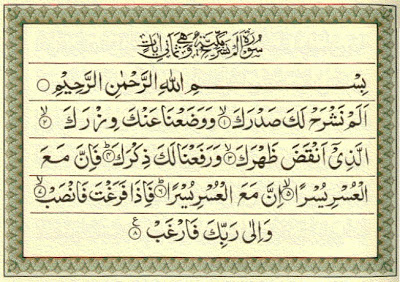 سورة الم نشرح مكية وهي ثماني ايات
بِسْمِ اللهِ الرَّحْمٰنِ الرَّحِيْمِ
اَلَمْ نَشْرَحْ لَكَ صَدْرَكَ ۙ۱ وَوَضَعْنَا عَنْكَ وِزْرَكَ ۙ۲
الَّذِىْٓ اَنْقَضَ ظَهْرَكَ ۙ۳ وَرَفَعْنَا لَكَ ذِكْرَكَ ؕ۴ فَاِنَّ مَعَ
الْعُسْرِ يُسْرًا ۙ۵ اِنَّ مَعَ الْعُسْرِ يُسْرًا ؕ۶ فَاِذَا فَرَغْتَ فَانْصَبْ ۙ۷
وَاِلٰى رَبِّكَ فَارْغَبْ ۸ ع